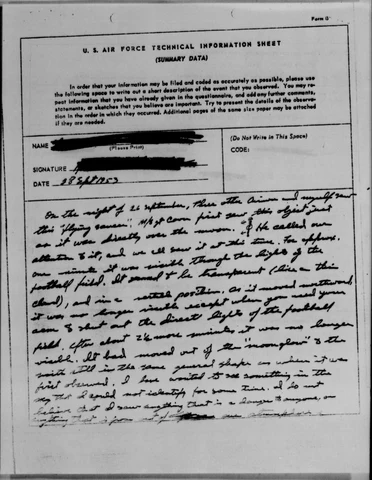 Form B
U. S. AIR FORCE TECHNICAL INFORMATION SHEET
(SUMMARY DATA)
In order that your information may be filed and coded as accurately as possible, please use
the following space to write out a short description of the event that you observed. You may re-
peat information that you have already given in the questionnaire, and add any further comments,
statements, or sketches that you believe are important. Try to present the details of the observa-
tion in the order in which they occurred. Additional pages of the same size paper may be attached
if they are needed.
NAME
(Please Print)
(Do Not Write in This Space)
CODE:
SIGNATURE
DATE 28 Sept 1953
On the night of 26 september, three other Airmen and myself saw
this "flying saucer". first saw this object just
as it was directly over the moon. He called our
attention to it, and we all saw it at this time. For approx.
one minute it was visible through the lights of the
football field. It seemed to be transparent (like a thin
cloud), and in a vertical position. As it moved northward,
it was no longer visible except when you used your
arm to shut out the direct lights of the football
field. After about 2½ more minutes, it was no longer
visible. It had moved out of the "moonglow" to the
north still in the same general shape as when it was
first observed. I have waited to see something in the
sky that I could not identify for some time. I do not
believe that I saw anything that is a danger to anyone, or
anything that is from